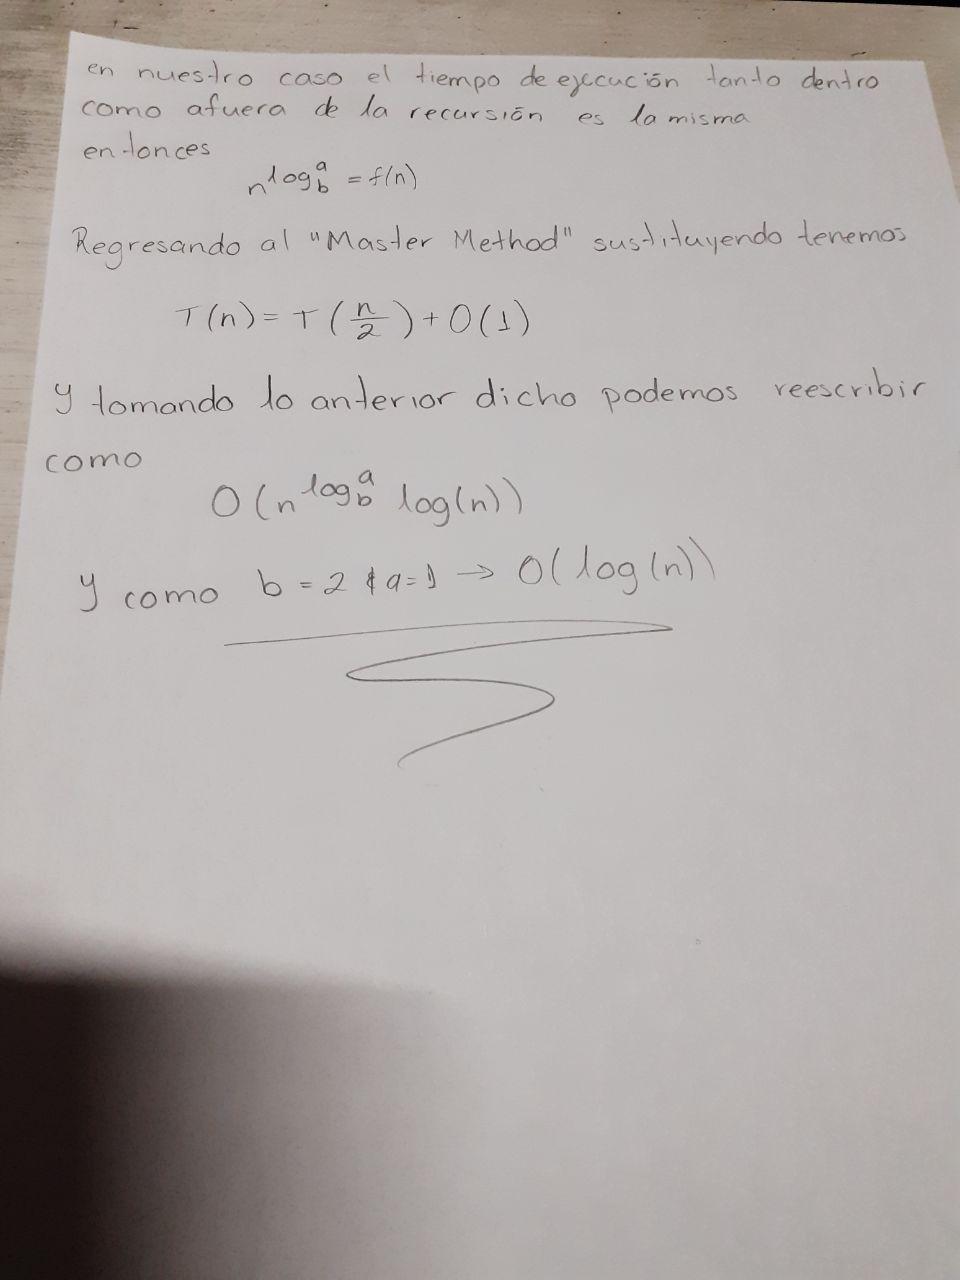 en nuestro caso el tiempo de ejecución tanto dentro
como afuera de la recursión es la misma
entonces
n^log_b^a = f(n)
Regresando al "Master Method" sustituyendo tenemos
T(n) = T(n/2) + O(1)
y tomando lo anterior dicho podemos reescribir
como
O(n^log_b^a log(n))
y como b = 2 & a = 1 → O(log(n))